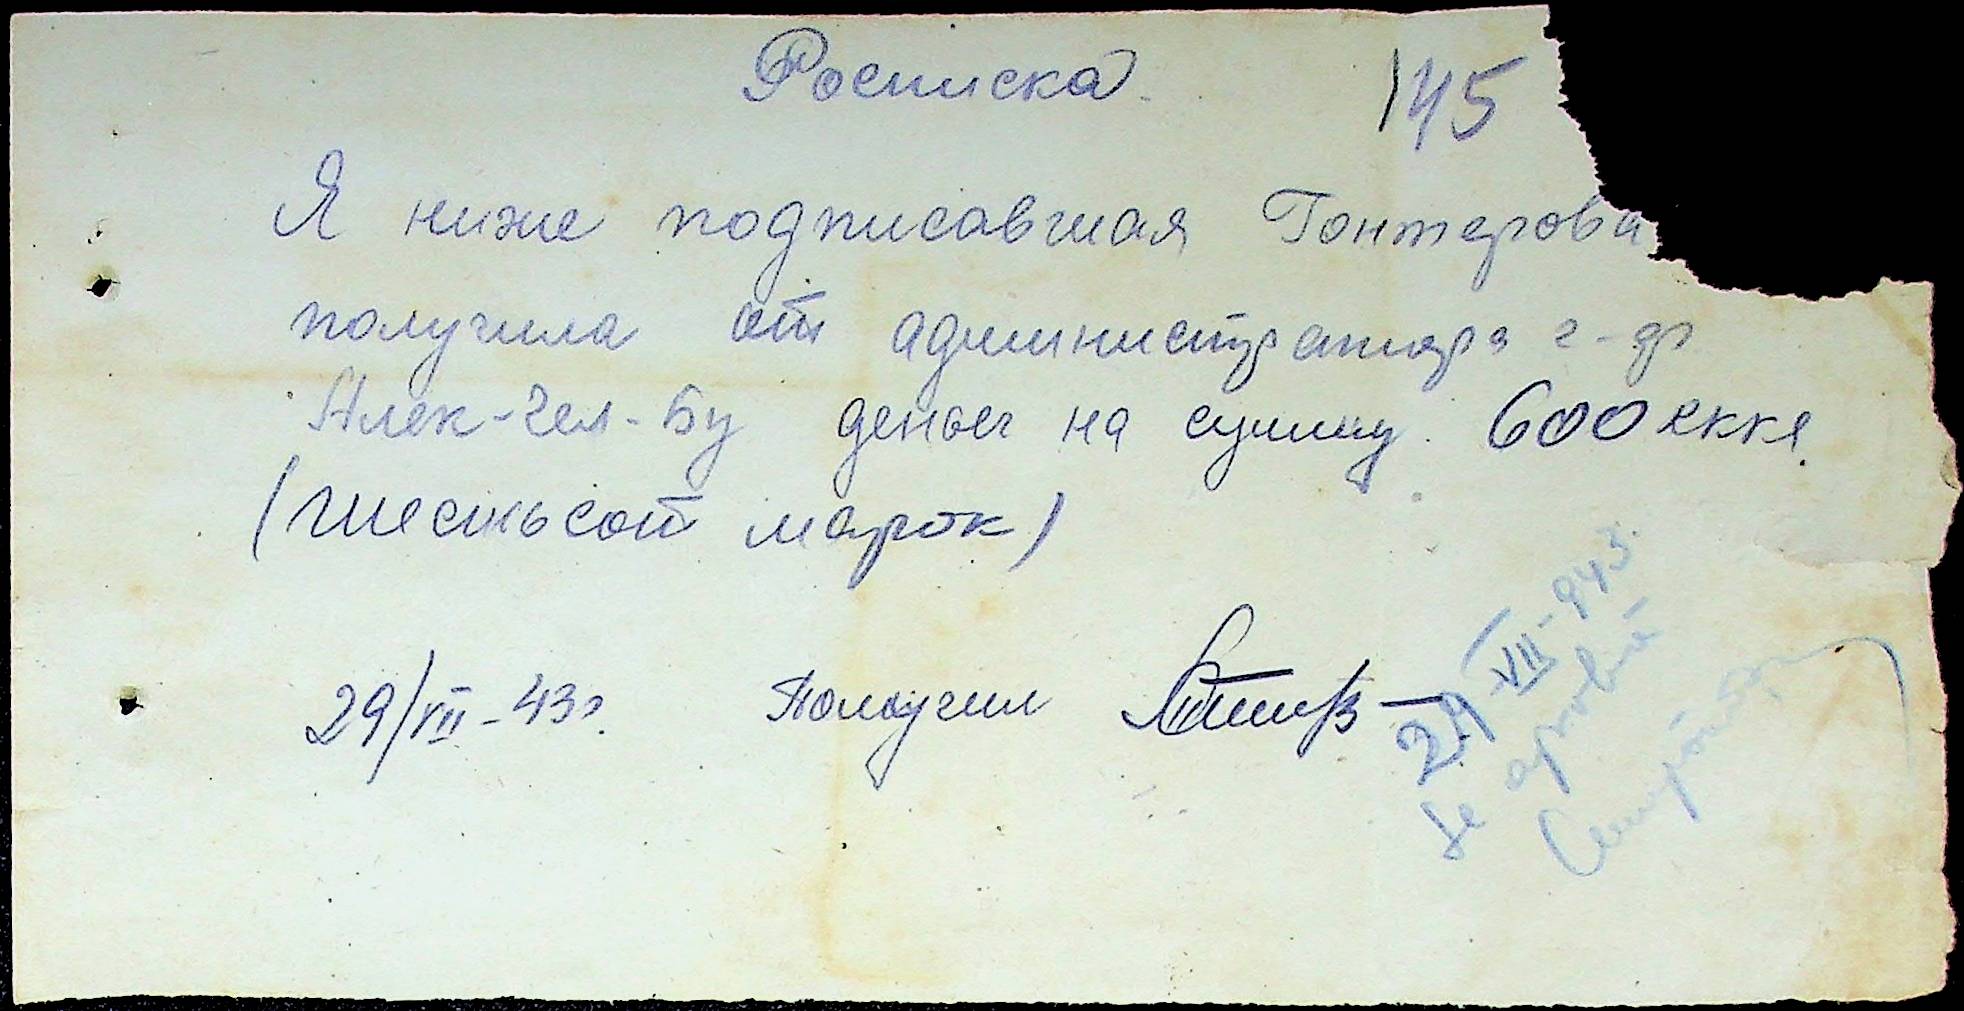 Росписка.
145
Я ниже подписавшая Гонтерова
получила от администратора г-др
Алек-Чел-Бу деньег на сумму 600 еккя
(шестьсот марок)
29/VII-43г. Полоучил
29-VII-943.
Se aprobă